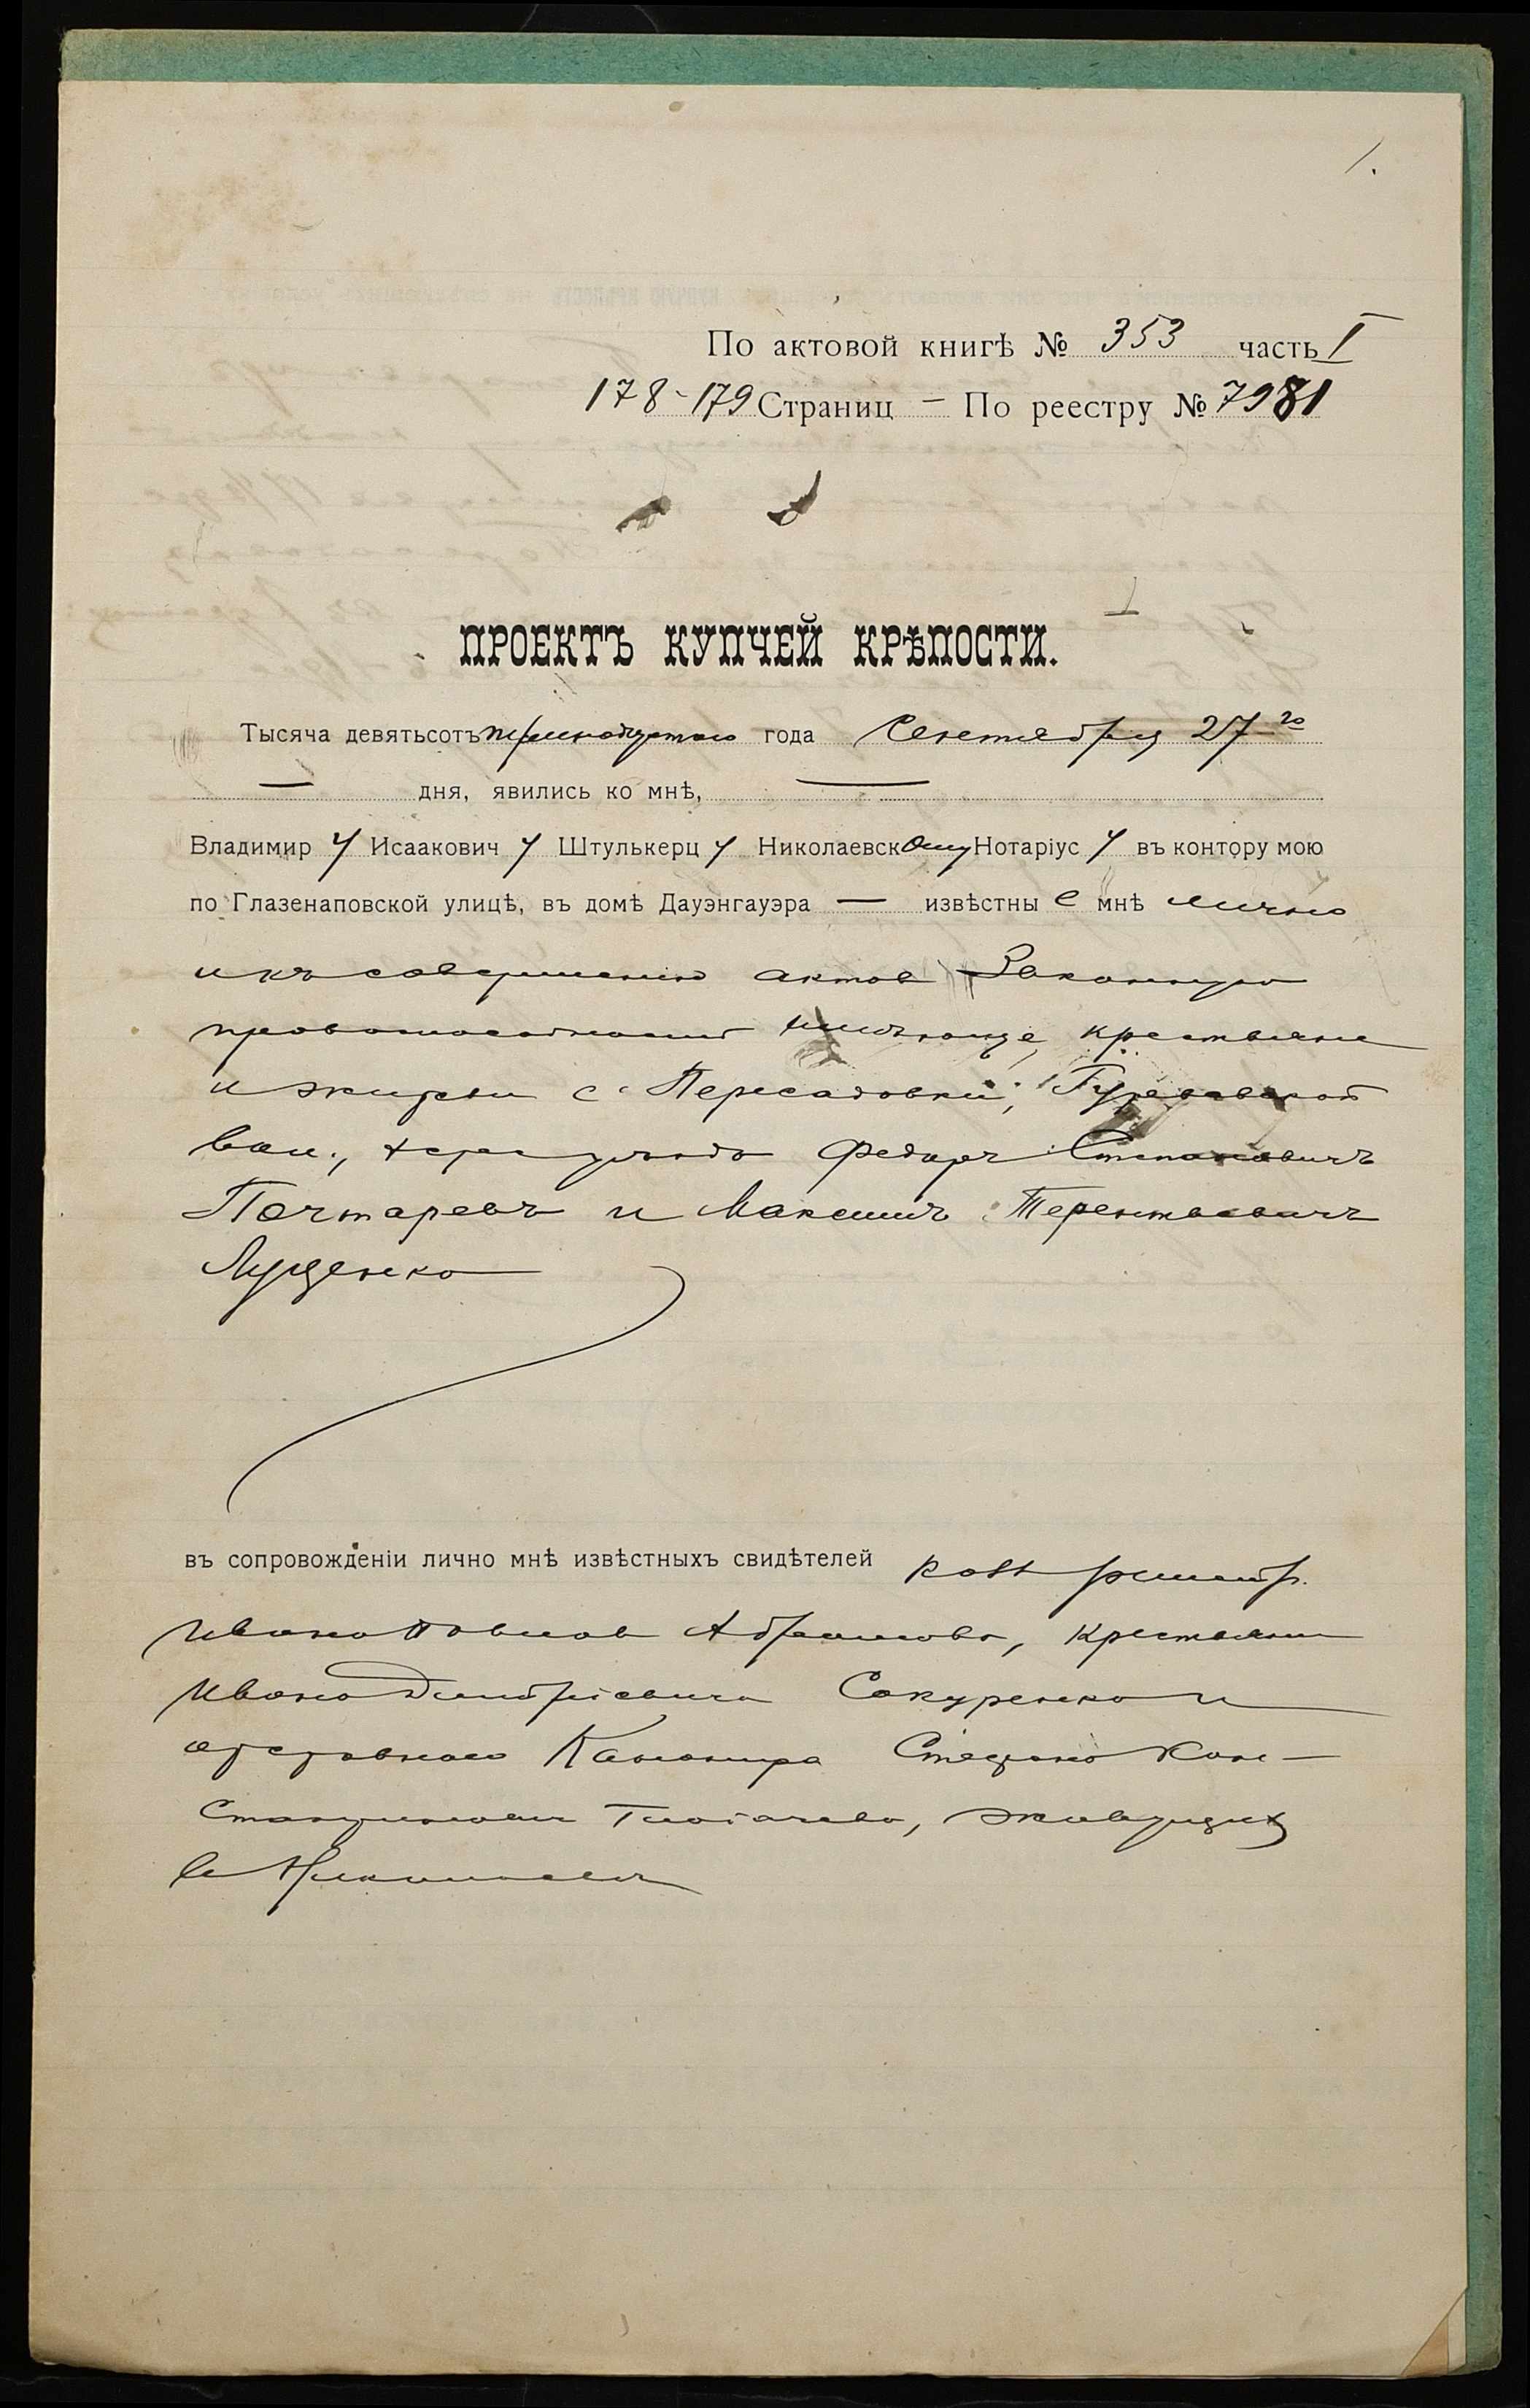 1.
По актовой книгѣ № 353 часть I
178-179 Страниц — По реестру № 7981
ПРОЕКТЪ КУПЧЕЙ КРѢПОСТИ.
Тысяча девятьсотъ тринадцатаго года Сентября 27го
— дня, явились ко мнѣ, —
Владимир у Исаакович у Штулькерц у Николаевскому Нотаріус у въ контору мою
по Глазенаповской улицѣ, въ домѣ Дауэнгауэра — извѣстные мнѣ лично
и къ совершенію актов законную
правоспособность имѣющіе, крестьяне
и жители с. Пересадовки,
вол., Херс уѣзда Федоръ Степановичъ
Почтаревъ и Максимъ Терентьевичъ
Луценко
въ сопровожденіи лично мнѣ извѣстныхъ свидѣтелей
Ивана Абрамова, крестьян
Ивана Димитріевича Сокуренко и
отставного Канонира Стефана Кон-
стантинович живущих
в Николаевѣ